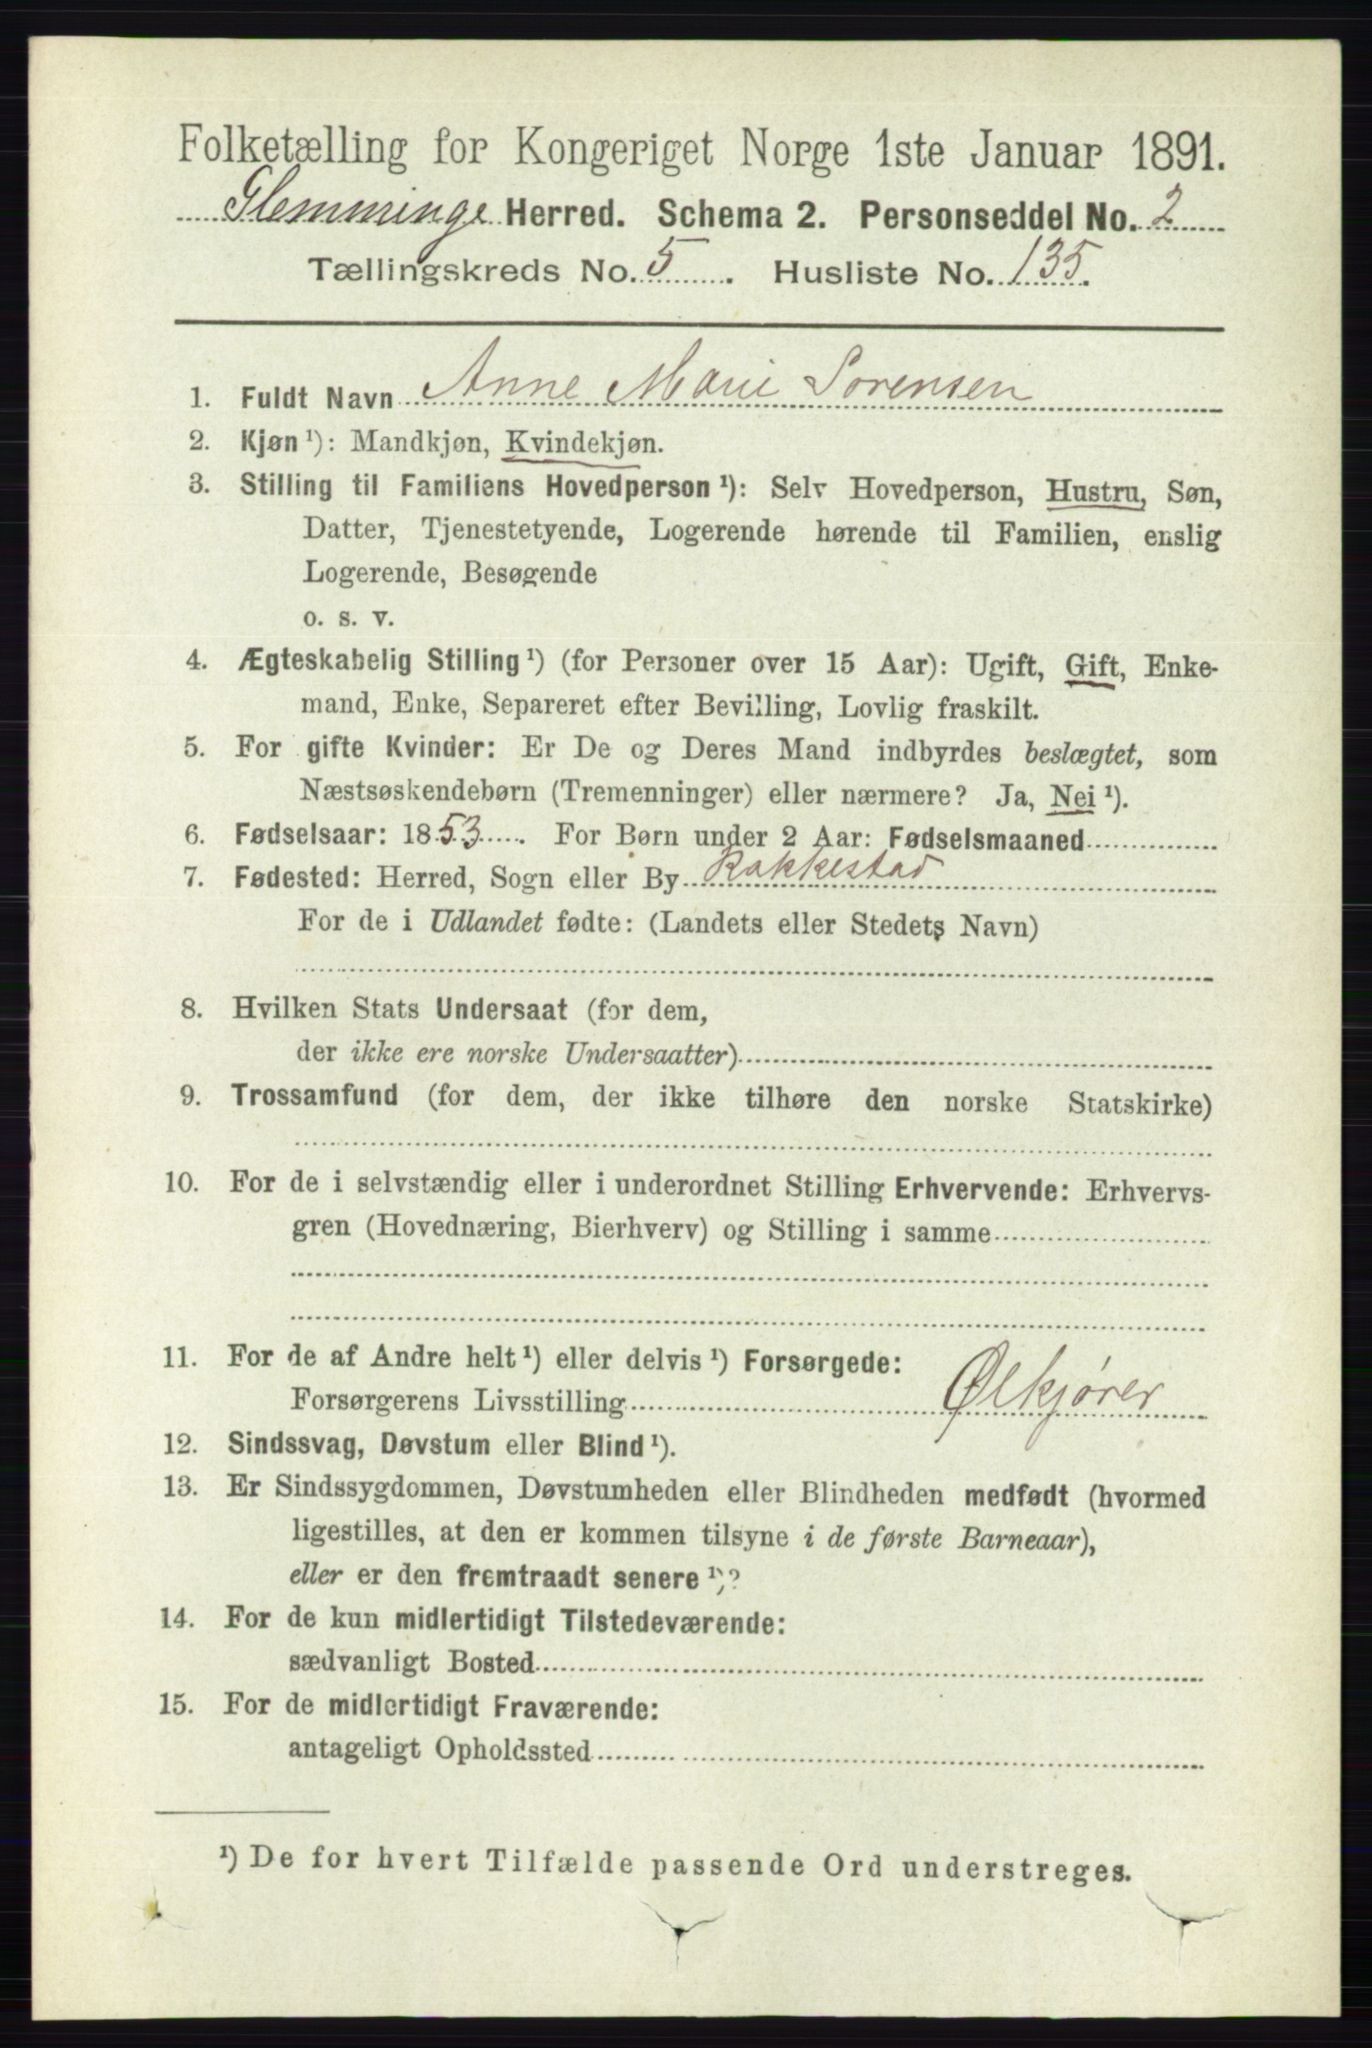 Folketælling for Kongeriget Norge 1ste Januar 1891.
Glemminge Herred. Schema 2. Personseddel No. 2
Tællingskreds No. 5. Husliste No. 135.
1. Fuldt Navn Anne Marie Sorensen
2. Kjøn ¹): Mandkjøn, Kvindekjøn.
3. Stilling til Familiens Hovedperson ¹): Selv Hovedperson, Hustru, Søn,
Datter, Tjenestetyende, Logerende hørende til Familien, enslig
Logerende, Besøgende
o. s. v.
4. Ægteskabelig Stilling ¹) (for Personer over 15 Aar): Ugift, Gift, Enke-
mand, Enke, Separeret efter Bevilling, Lovlig fraskilt.
5. For gifte Kvinder: Er De og Deres Mand indbyrdes beslægtet, som
Næstsøskendebørn (Tremenninger) eller nærmere? Ja, Nei ¹).
6. Fødselsaar: 1853. For Børn under 2 Aar: Fødselsmaaned
7. Fødested: Herred, Sogn eller By Rakkestad
For de i Udlandet fødte: (Landets eller Stedets Navn)
8. Hvilken Stats Undersaat (for dem,
der ikke ere norske Undersaatter)
9. Trossamfund (for dem, der ikke tilhøre den norske Statskirke)
10. For de i selvstændig eller i underordnet Stilling Erhvervende: Erhvervs-
gren (Hovednæring, Bierhverv) og Stilling i samme
11. For de af Andre helt ¹) eller delvis ¹) Forsørgede:
Forsørgerens Livsstilling Ølkjører
12. Sindssvag, Døvstum eller Blind ¹).
13. Er Sindssygdommen, Døvstumheden eller Blindheden medfødt (hvormed
ligestilles, at den er kommen tilsyne i de første Barneaar),
eller er den fremtraadt senere ¹)?
14. For de kun midlertidigt Tilstedeværende:
sædvanligt Bosted
15. For de midlertidigt Fraværende:
antageligt Opholdssted
¹) De for hvert Tilfælde passende Ord understreges.